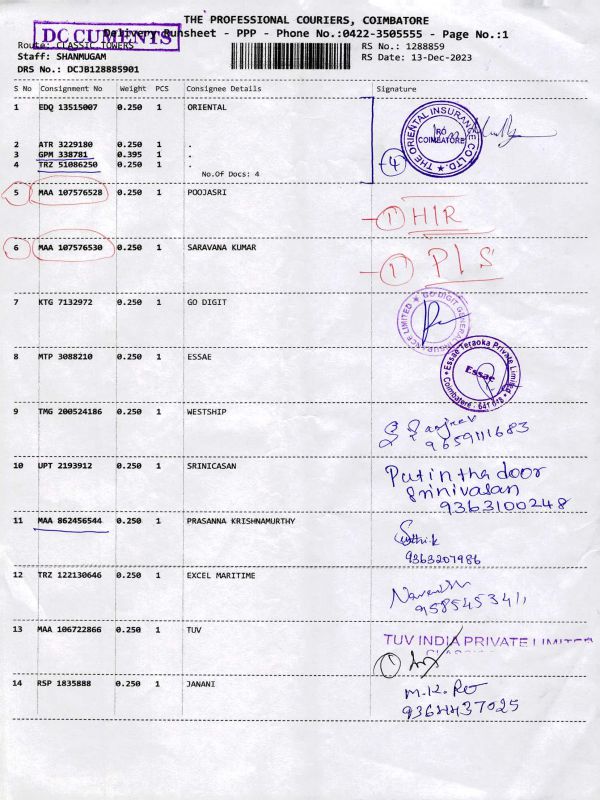 THE PROFESSIONAL COURIERS, COIMBATORE
DOCUMENTS
Delivery Runsheet - PPP - Phone No.:0422-3505555 - Page No.:1
Route: CLASSIC TOWERS RS No.: 1288859
Staff: SHANMUGAM RS Date: 13-Dec-2023
DRS No.: DCJB128885901
S No Consignment No Weight PCS Consignee Details Signature
1 EDQ 13515007 0.250 1 ORIENTAL
THE ORIENTAL INSURANCE CO LTD.
RO
COIMBATORE
2 ATR 3229180 0.250 1 .
3 GPM 338781 0.395 1 .
4 TRZ 51086250 0.250 1 . 4
No.Of Docs: 4
5 MAA 107576528 0.250 1 POOJASRI
1 H/R
6 MAA 107576530 0.250 1 SARAVANA KUMAR
1 P/S
7 KTG 7132972 0.250 1 GO DIGIT
GO DIGIT GENERAL INSURANCE LIMITED
8 MTP 3088210 0.250 1 ESSAE
Essae Teraoka Private Limited
Essae
Coimbatore - 641 018
9 TMG 200524186 0.250 1 WESTSHIP
9659111683
10 UPT 2193912 0.250 1 SRINICASAN
Put in the door
Srinivasan
9363100248
11 MAA 862456544 0.250 1 PRASANNA KRISHNAMURTHY
9363207986
12 TRZ 122130646 0.250 1 EXCEL MARITIME
13 MAA 106722866 0.250 1 TUV
TUV INDIA PRIVATE LIMITED
1
14 RSP 1835888 0.250 1 JANANI
9364437025